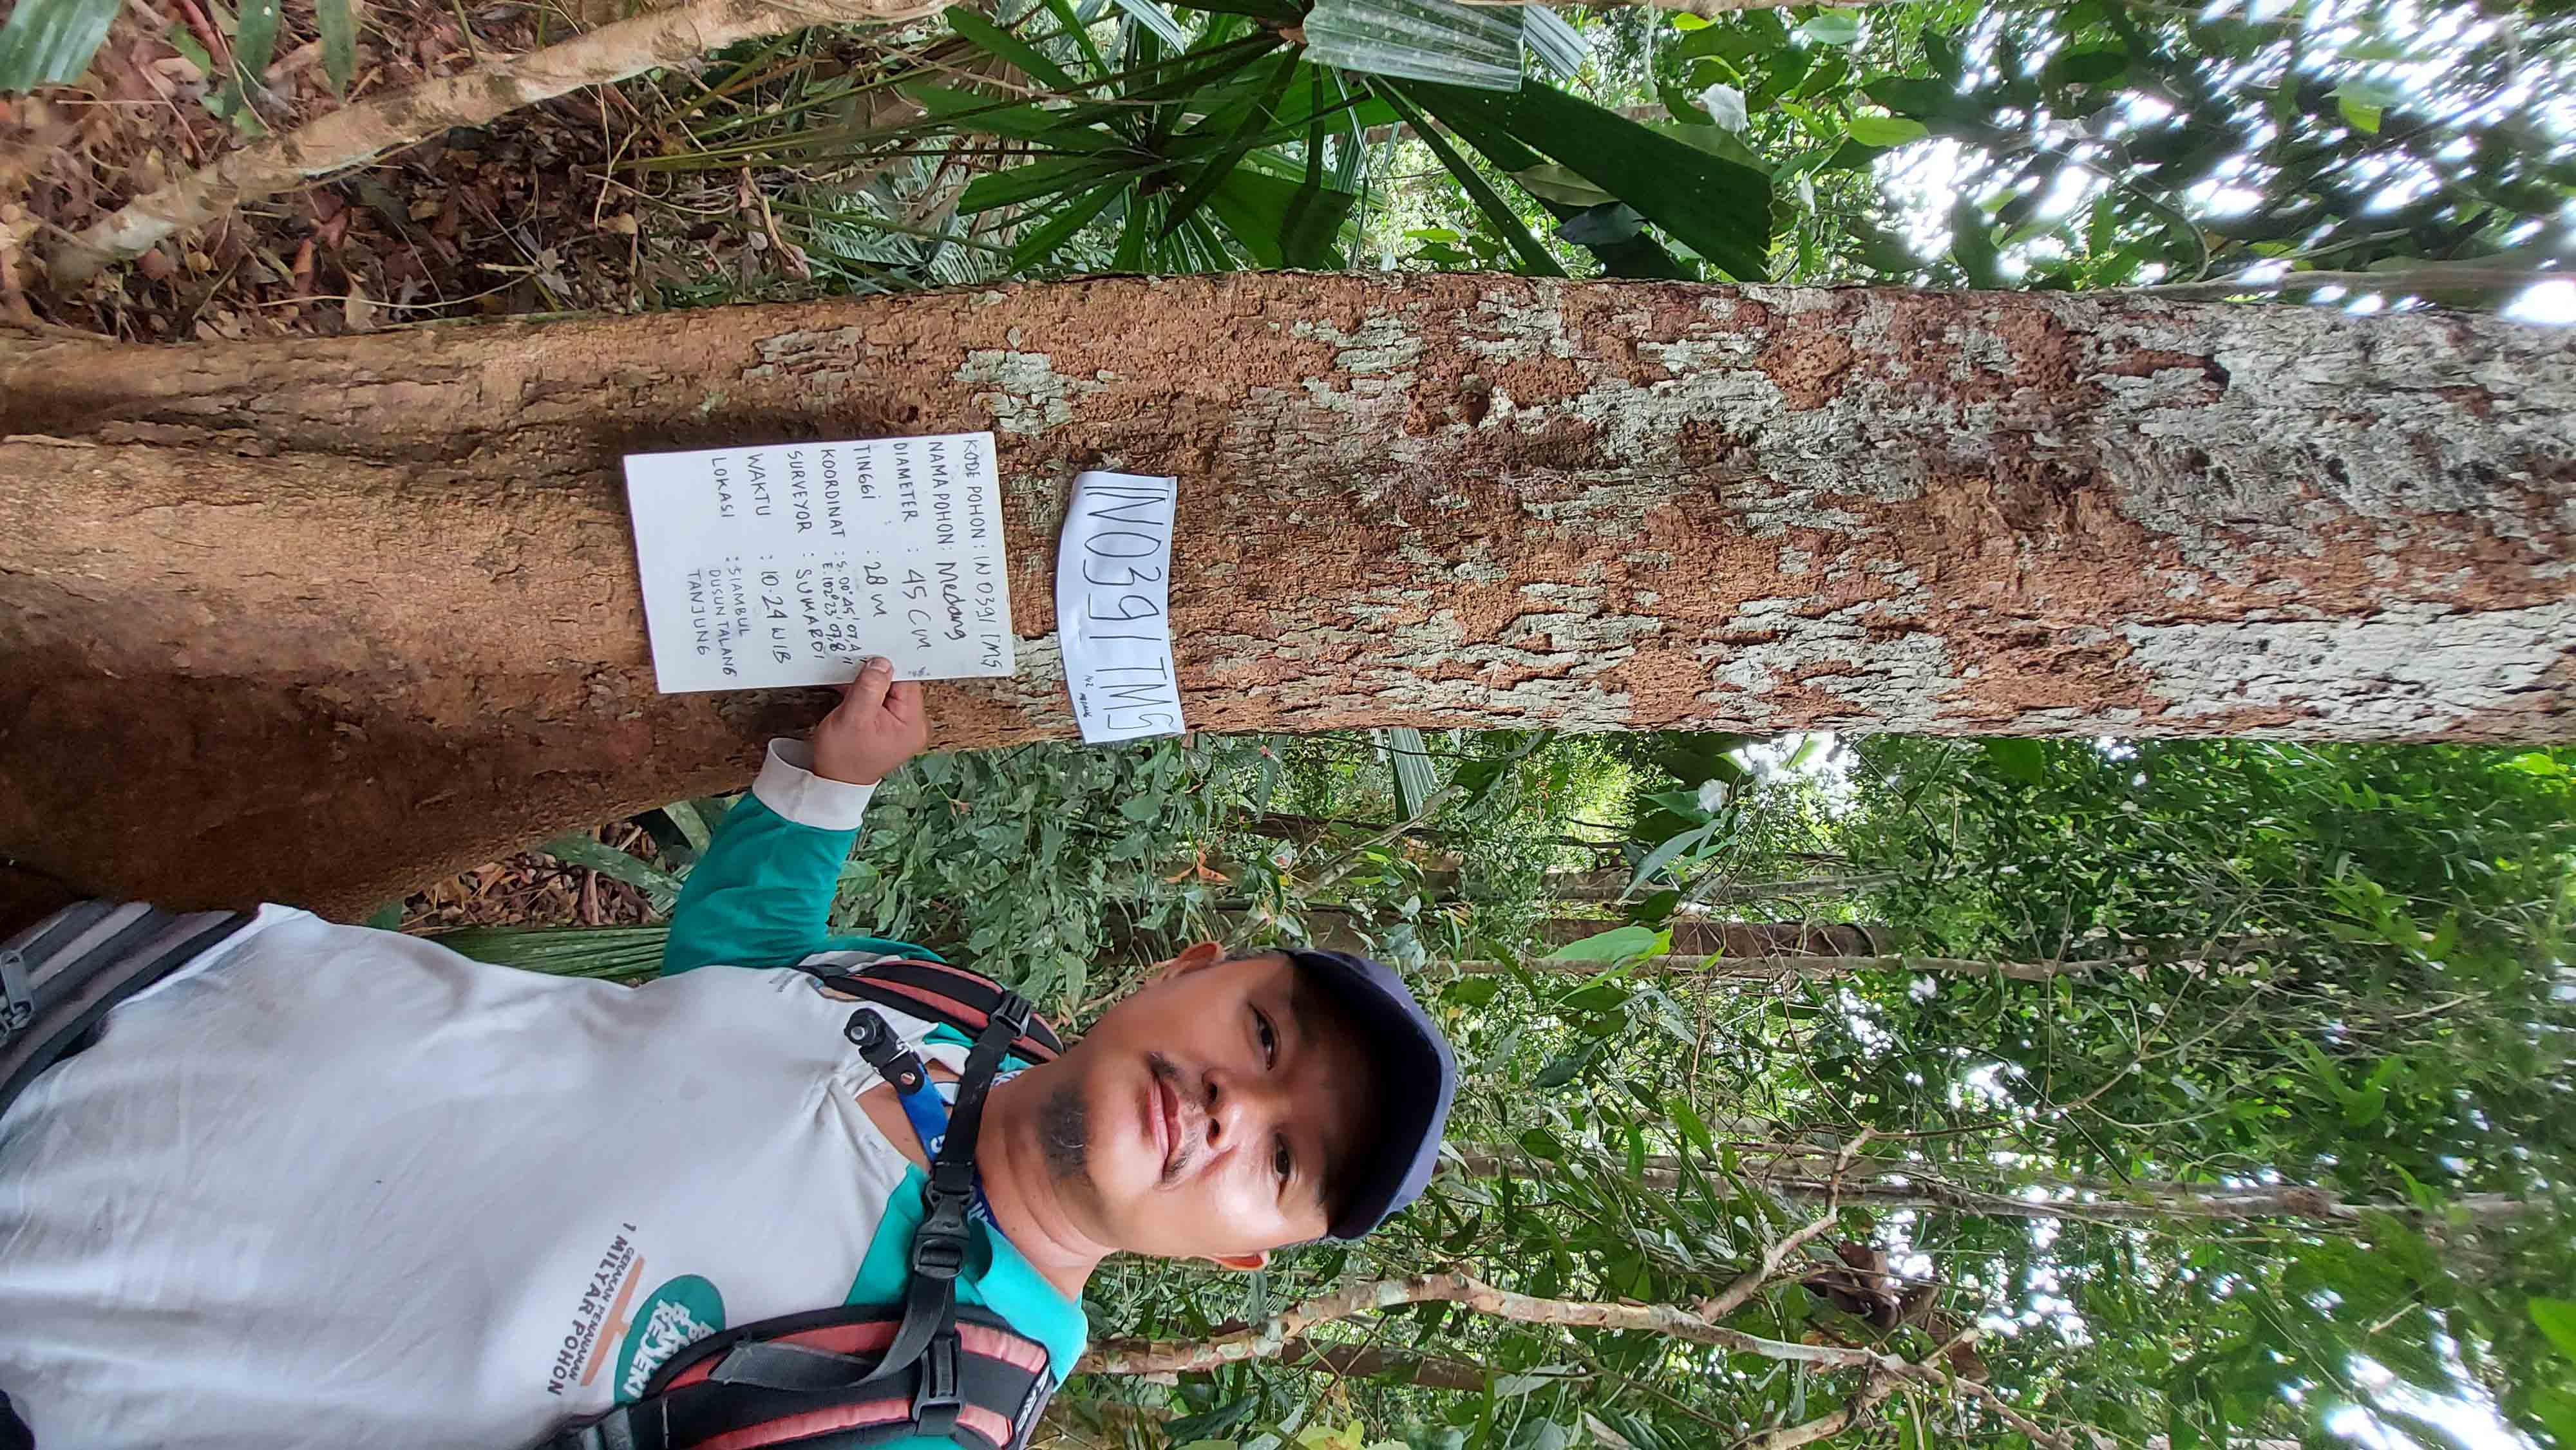 IN0391 TMS
142 MEDANG
KODE POHON : IN 0391 TMS
NAMA POHON : Medang
DIAMETER : 45 Cm
TINGGI : 28 m
KOORDINAT : S. 00° 45' 07,4"
E. 102° 23' 07,8"
SURVEYOR : SUMARDI
WAKTU : 10.24 WIB
LOKASI : SIAMBUL
DUSUN TALANG
TANJUNG
BANYAK
REJEKI
GERAKAN PENANAMAN
1 MILYAR POHON